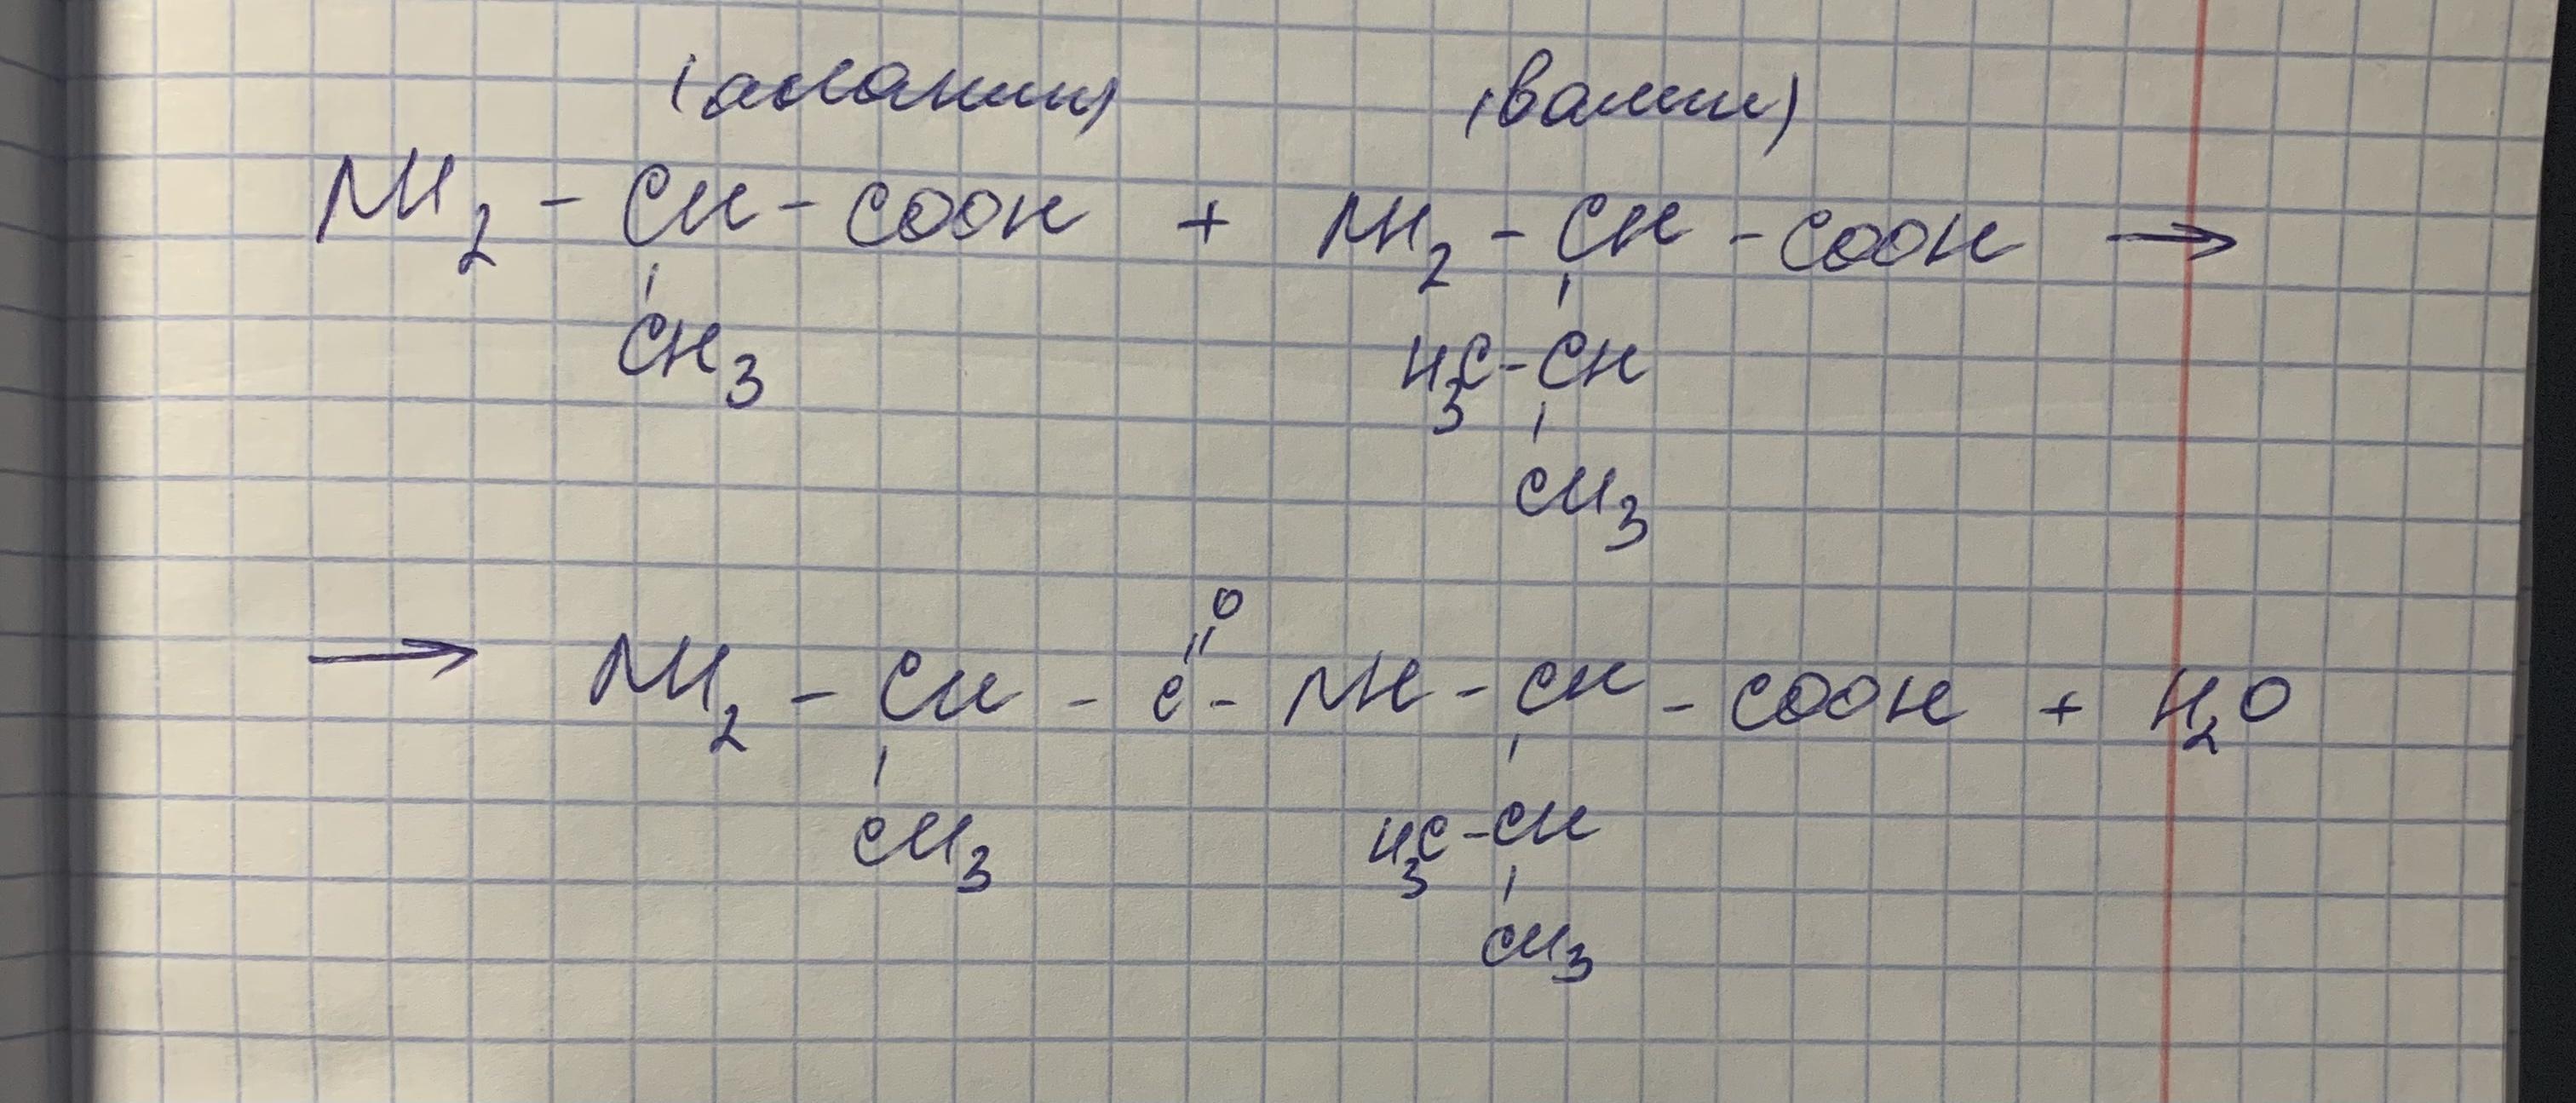 (аланин) (валин)
NH2 - CH - COOH + NH2 - CH - COOH →
CH3 H3C - CH
CH3
O
→ NH2 - CH - C - NH - CH - COOH + H2O
CH3 H3C - CH
CH3